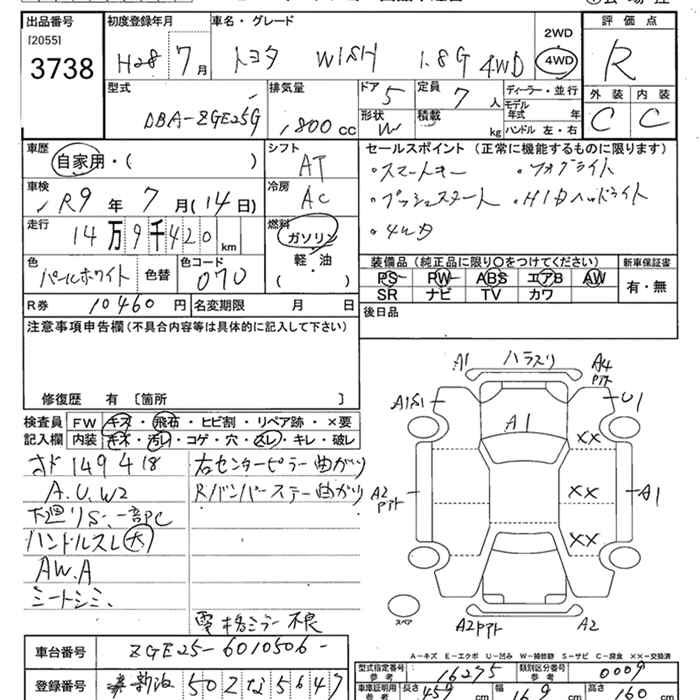 出品番号 初度登録年月 車名・グレード 評価点
[2055]
3738 H28 7月 トヨタ WISH 1.8G 4WD 2WD 4WD R
型式 排気量 ドア 5 定員 7人 ディーラー・並行 外装 内装
DBA-ZGE25G 1800cc 形状 W 積載 kg モデル年式 年式 C C
ハンドル 左・右
車歴 シフト セールスポイント (正常に機能するものに限ります)
自家用・( ) AT ・スマートキー ・フォグライト
車検 冷房 ・プッシュスタート ・HIDヘッドライト
R9年 7月(14日) AC ・4WD
走行 燃料
14万9千420km ガソリン
軽・油
( )
色 色替 色コード 装備品 (純正品に限り○をつけてください) 新車保証書
パールホワイト 070 PS PW ABS エアB AW 有・無
SR ナビ TV カワ
R券 10460円 名変期限 月 日 後日品
注意事項申告欄(不具合内容等は具体的に記入して下さい)
修復歴 有 〔箇所 〕
検査員 FW キズ・飛石・ヒビ割・リペア跡・×要
記入欄 内装 キズ・汚レ・コゲ・穴・スレ・キレ・破レ
オド149418 右センターピラー曲がり
A.U.W2 R/バンパーステー曲がり
下廻りS、一部PC
ハンドルスレ大
AW.A
シートシミ.
電格ミラー不良
A1 ハラスリ A4
A1S1 U1
A1
××
A2 ×× A1
××
スペア
A2 A2
A-キズ E-エクボ U-凹み W-補修跡 S-サビ C-腐食 ××-交換済
車台番号 ZGE25-6010506-
型式指定番号 参考 16275 類別区分番号 参考 0009
登録番号 新潟 502 な 5647
車証明用 参考 長さ 459 cm 幅 169 cm 高さ 160 cm